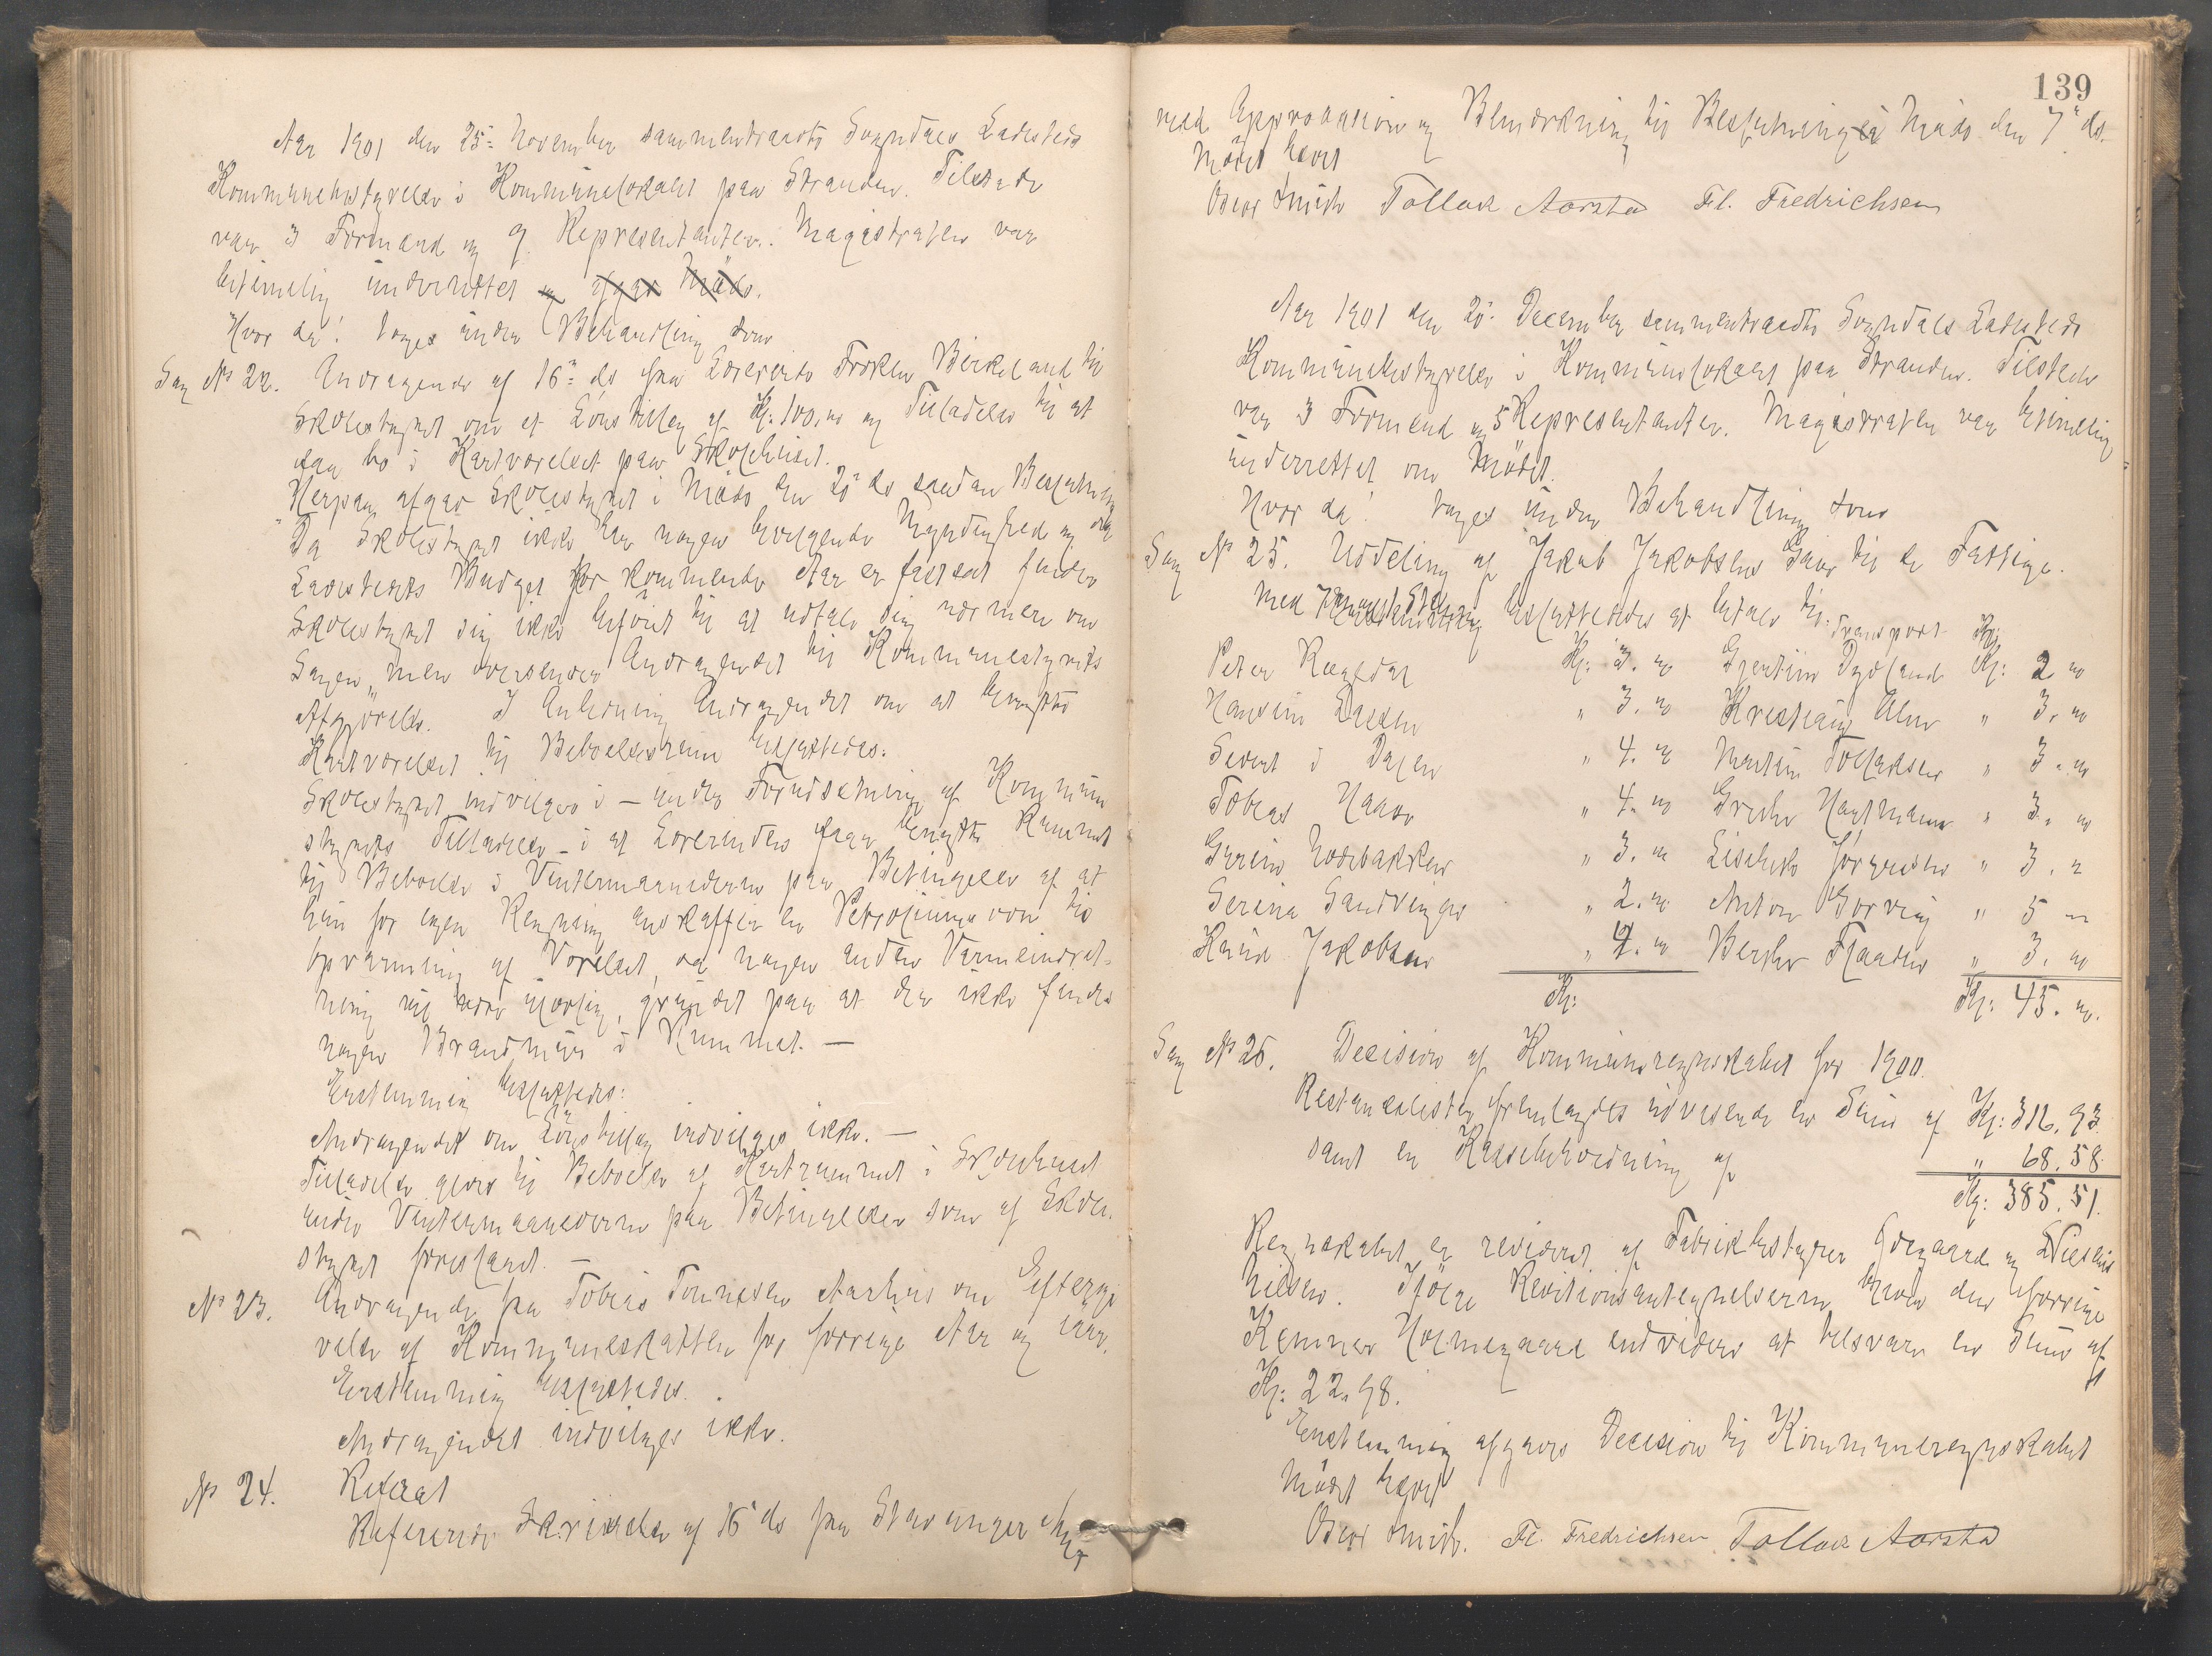 Aar 1901 den 25: November sammentraadte Sogndals Ladesteds
Kommunebestyrelse i Kommunelokalet paa Stranden. Tilstede
var 3 Formænd og 9 Repræsentanter. Magistraten var
betimelig underrettet og afgav Möde.
Hvor da! toges under Behandling som
Sag No 22. Andragende af 16: ds fra Lærerinde Fröken Birkeland til
Skolestyret om et Lönstillæg af Kr: 100,00 og Tilladelse til at
faa bo i Kartværelset paa Skolehuset.
Herpaa afgav Skolestyret i Möde den 20 ds saadan Beslutning
"Da Skolestyret ikke har nogen bevilgende Myndighed og da
Ladestedets Budget for kommende Aar er fastsat finder
Skolestyret sig ikke beföiet til at udtale sig nærmere om
Sagen, men oversender Andragendet til Kommunestyrets
Afgjörelse. I Anledning Andragendet om at benytte
Kartværelset til Beboelsesrum besluttedes:
Skolestyret indvilger i - under Forudsætning af Kommune
styrets Tilladelse - i at Lærerinden faar benytte Rummet
til Beboelse i Vintermaanederne paa Betingelse af at
hun for egen Regning anskaffer en Petroliumsovn til
Opvarming af Værelset, da nogen anden Varmeindret-
ning vil være ulovlig, grundet paa at der ikke findes
nogen Brandmur i Rummet. —
Enstemmig besluttedes:
Andragendet om Lönstillæg indvilges ikke. —
Tilladelse gives til Beboelse af Kartrummet i Skolehuset
under Vintermaanederne paa Betingelser som af Skole-
styret foreslaaet. —
No 23. Andragende fra Tobias Tonnesen Aarhus om Eftergi
velse af Kommuneskatten for forrige Aar og iaar.
Enstemmig besluttedes.
Andragendet indvilges ikke.
No 24. Referat
Refereredes Skrivelse af 16 ds fra Stavanger Amt
139
med Approbasion og Bemerkning til Beslutning i Möde den 7" ds.
Mödet hævet
Oscar Smith Tollak Aarstad Fl. Fredrichsen
Aar 1901 den 20: December sammentraadte Sogndals Ladesteds
Kommunebestyrelse i Kommunelokalet paa Stranden. Tilstede
var 3 Formænd og 5 Repræsentanter. Magistraten var betimelig
underrettet om Mödet.
Hvor da! toges under Behandling som
Sag No 25. Uddeling af Jakob Jakobsens Gave til de Fattige.
Med besluttedes at betale til: Transport Kr:
Peter Rægedal Kr: 3. 00 Gjertine Dydland Kr: 2 00
Hansine Larsen " 3. 00 Kristiane Olsen " 3. 00
Sivert i Dalen " 4. 00 Martin Tollaksen " 3. 00
Tobias Haave " 4. 00 Grethe Hartmann " 3. 00
Gurine Nordbakken " 3. 00 Lisebeth Jörgensen " 3. 00
Serina Sandvingen " 2. 00 Anton Gorvig " 5 00
Knud Jakobsen " 4. 00 Berthe Flaaden " 3. 00
Kr: Kr: 45. 00.
Sag No 26. Decision af Kommuneregnskabet for 1900.
Restanselisten fremlagdes udvisende en Sum af Kr: 316. 93
samt en Kassebeholdning af " 68. 58
Kr: 385. 51.
Regnskabet er revideret af Fabrikbestyrer Goegaard og
Nilsen. Ifölge Revitionsantegnelserne haver den forrige
Kemner Holmegaard endvidere at tilsvare en Sum af
Kr: 22. 98.
Enstemmig afgaves Decision til Kommuneregnskabet
Mödet hævet
Oscar Smith. Fl. Fredrichsen Tollak Aarstad